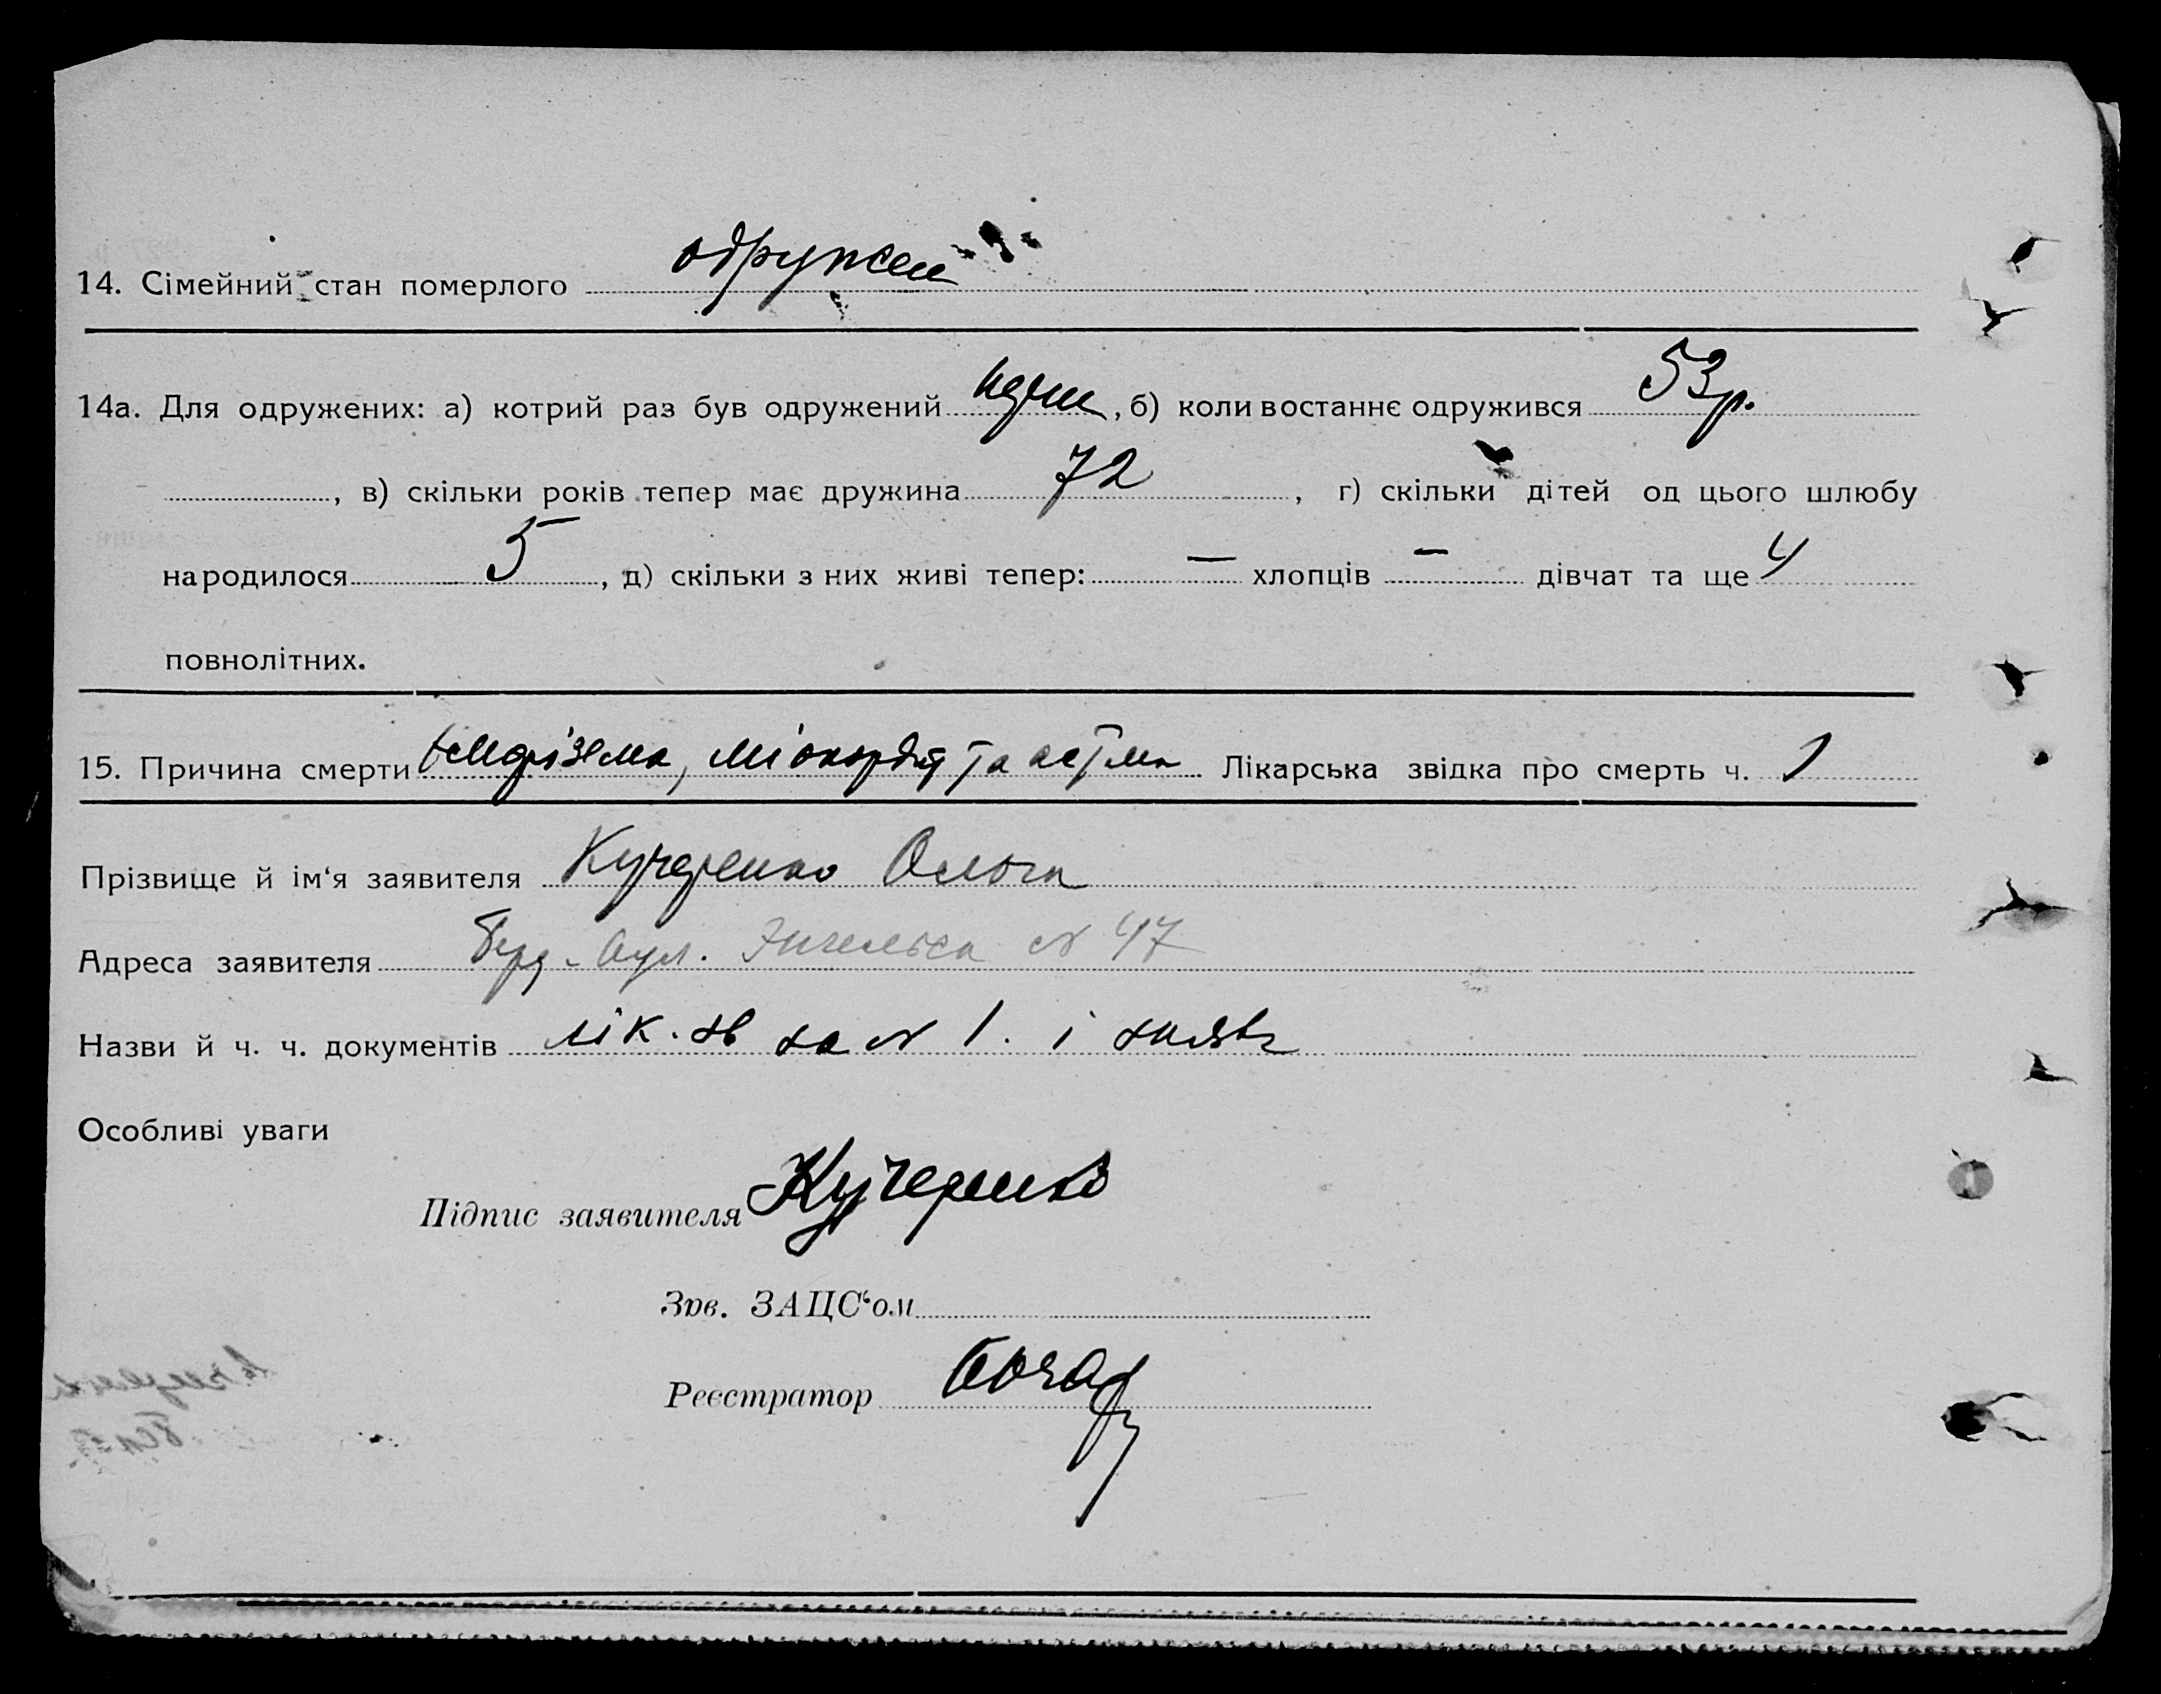 14. Сімейний стан померлого одружен
14а. Для одружених: а) котрий раз був одружений перш, б) коли востаннє одружився 53 р.
, в) скільки років тепер має дружина 72, г) скільки дітей од цього шлюбу
народилося 5, д) скільки з них живі тепер: — хлопців — дівчат та ще 4
повнолітних.
15. Причина смерти Емфізема, міокардит та астма Лікарська звідка про смерть ч. 1
Прізвище й ім‘я заявителя Кучеренко Ольга
Адреса заявителя вул. Энгельса № 47
Назви й ч. ч. документів лік. зв за № 1. і заява
Особливі уваги
Підпис заявителя Кучеренко
Зав. ЗАЦС‘ом
Реєстратор